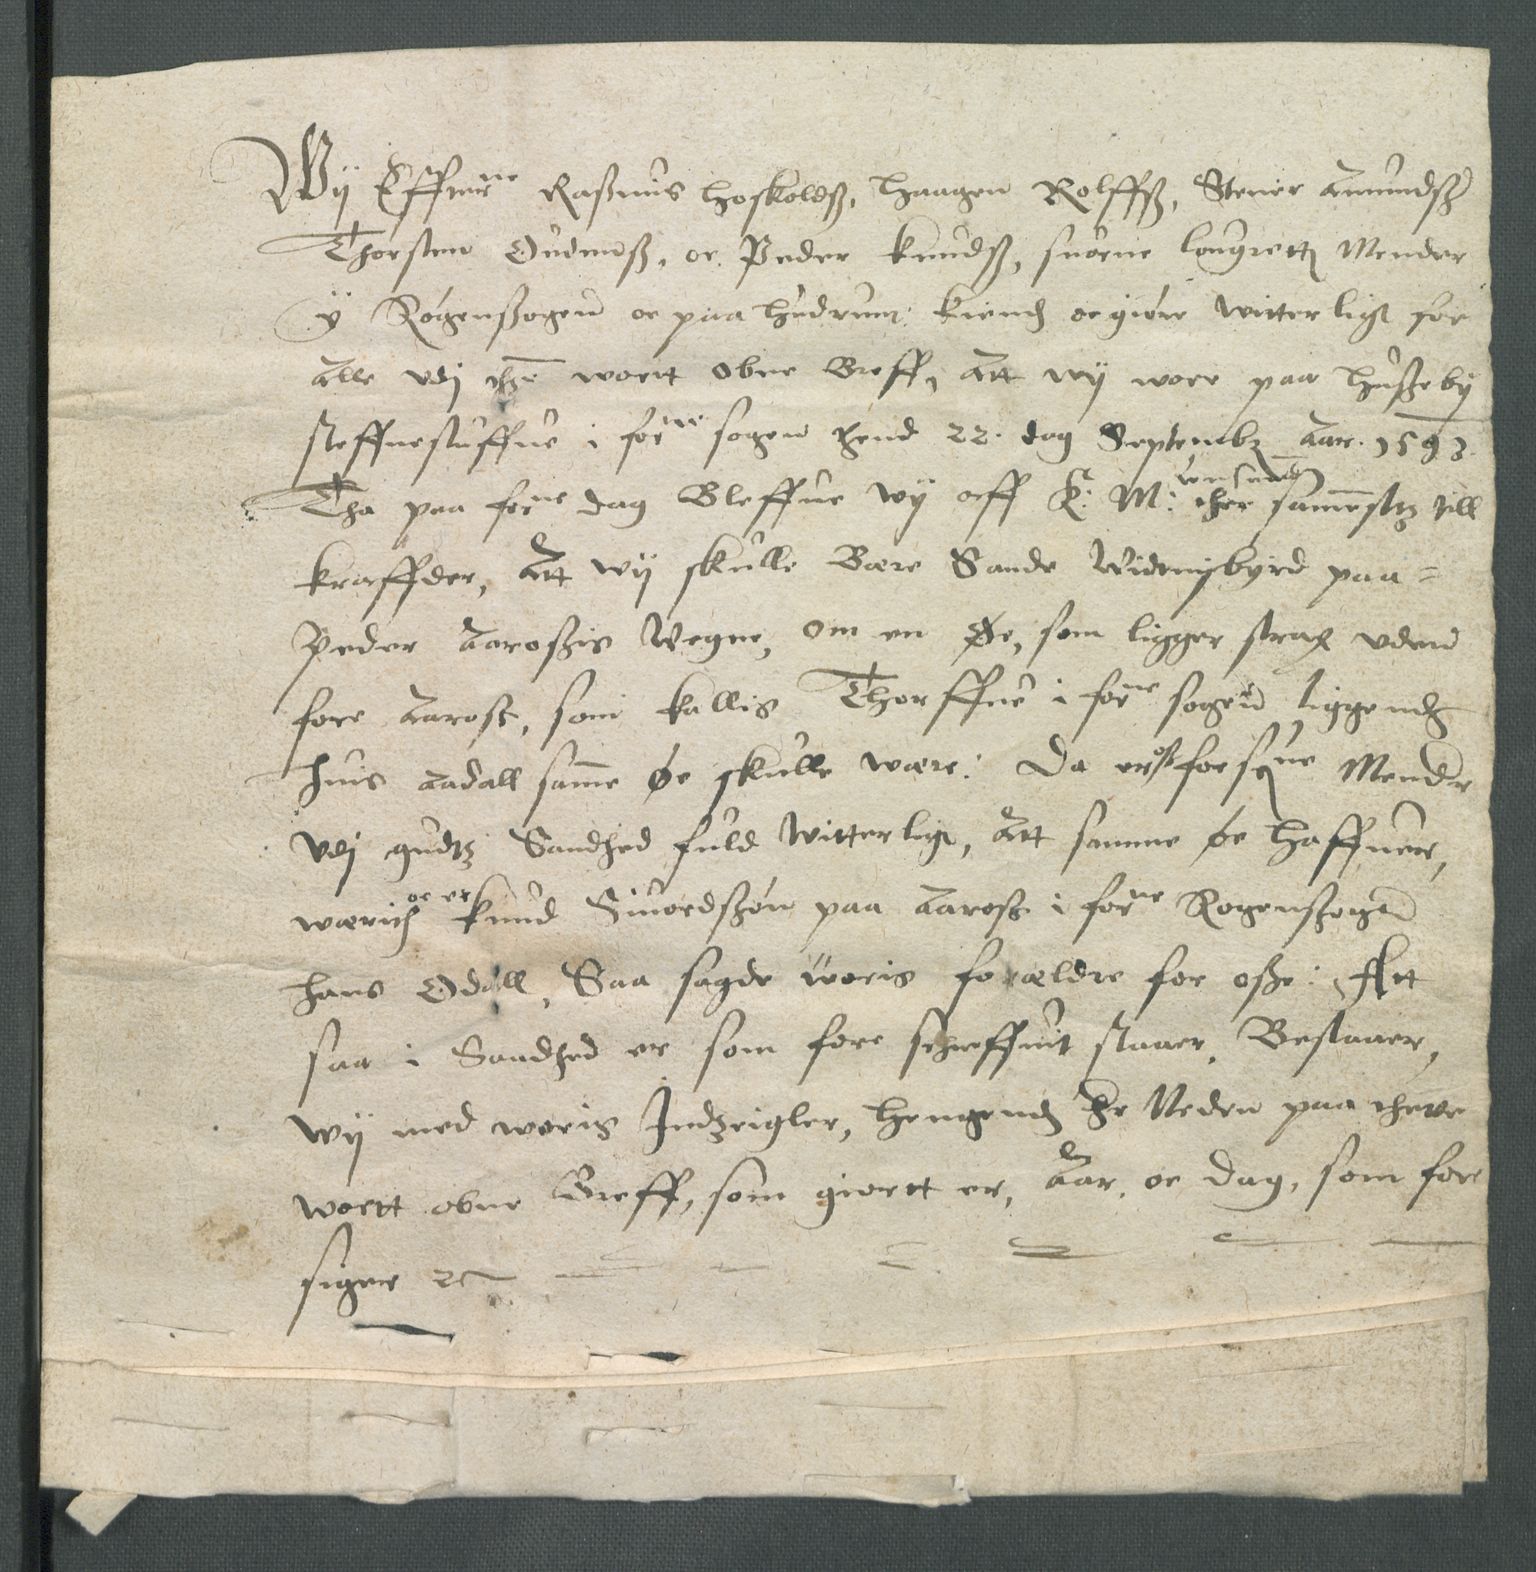 Wÿ Effterne Rasmus Hoskoldß, Haagen Rolffß, Stener Amundß
Thorsten Gudmuß, oc Peder Knudß, suorne Lougrette Mender
ÿ Rögensogen oc paa Hudrum, kiende oc giöre witterligt for
alle vdj thẽ wortt obne Breff, Att wÿ wore paa Hußebÿ
steffnestuffue i forne sogen thend 22. dag Septemb: Aar. 1593.
Tha paa forne dag Bleffue wÿ aff K: M: ther samestz till
kraffder, Att wÿ skulle Bære Sande Widenißbyrd paa=
Peder Aaroßis Wegne, om en Øe, som ligger strax vden
fore Aaroß, som kallis Thorffue i forne sogen liggende
Huis aadall samme øe skulle være: Da er oß forscne Mendr
Vdj gudtz Sandhed fuld Witterligt, Att samme øe Haffuer,
wærit oc er Knud Siuordßön paa Aaroß i forne Rogenßogen
hans Odall, Saa sagde woris forældre for oße: Att
saa i Sandhed er som fore screffuit staaer, Bestaaer,
wÿ med woris Indzeigler, Hengende her Neden paa thette
wortt obne Breff, som giortt er, Aar, oc dag, som fore
siger ꝛc